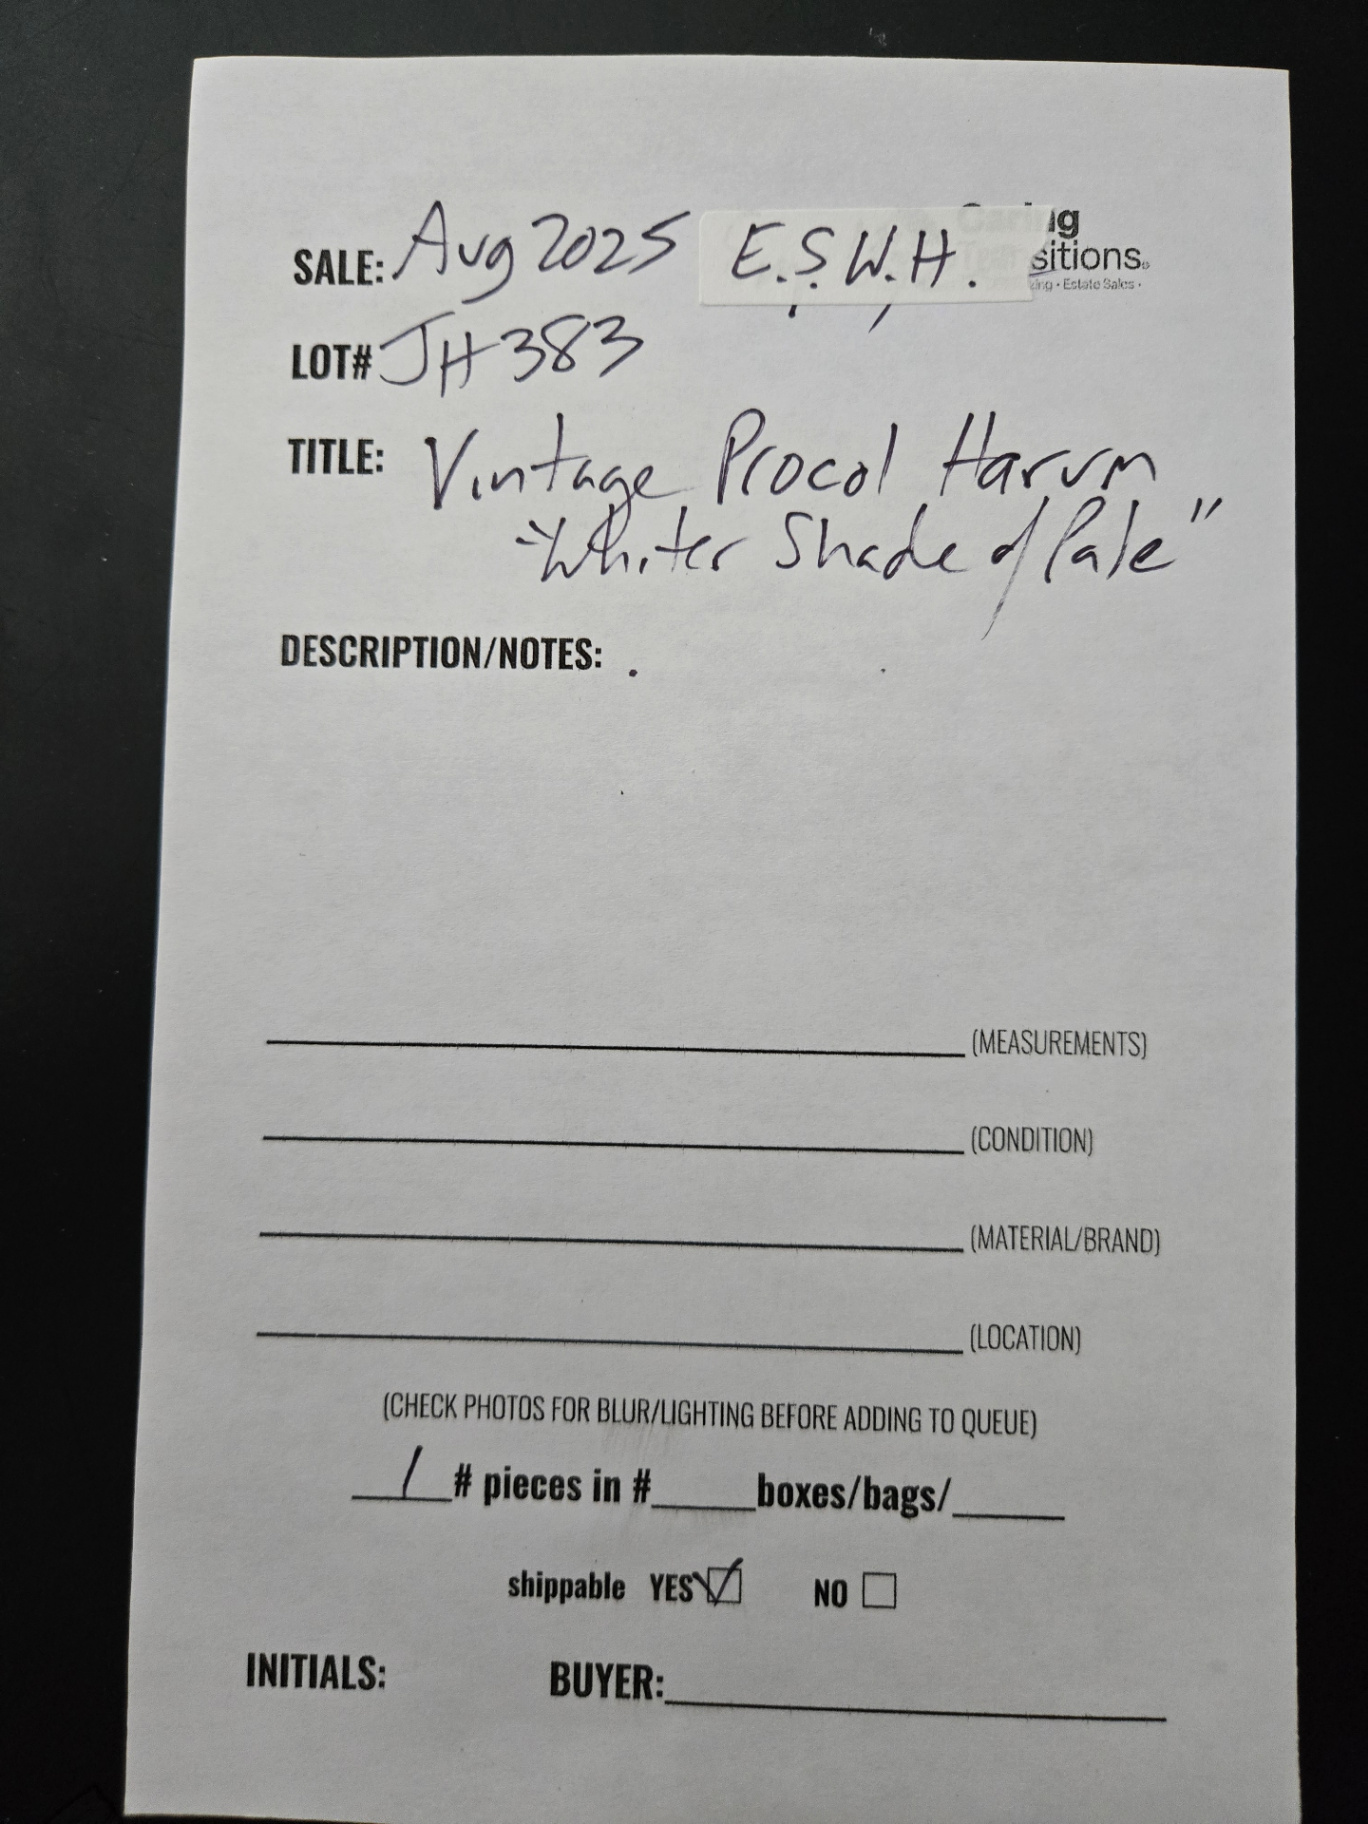 SALE: Aug 2025 E.S.W.H.
Caring
sitions
ing • Estate Sales •
LOT# JH383
TITLE: Vintage Procol Harum
"Whiter Shade of Pale"
DESCRIPTION/NOTES: .
(MEASUREMENTS)
(CONDITION)
(MATERIAL/BRAND)
(LOCATION)
(CHECK PHOTOS FOR BLUR/LIGHTING BEFORE ADDING TO QUEUE)
1 # pieces in #_____boxes/bags/_____
shippable YES ☑ NO ☐
INITIALS: BUYER: